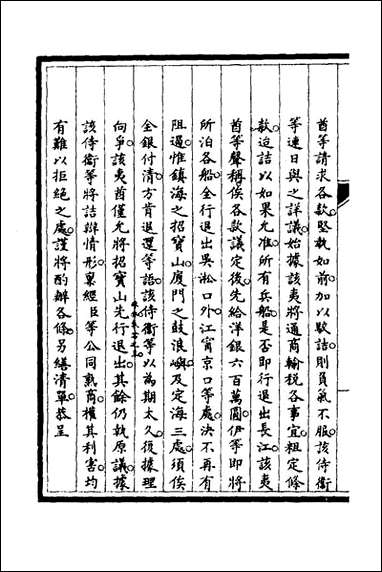 酋等請求各款堅執如前加以駁詰則負氣不服該侍衛
等連日與之詳議始據該夷將通商輸税各事宜粗定條
款迨詰以如果允准所有兵船是否即行退出長江該夷
酋等聲稱俟各款議定後先給洋銀六百萬圓伊等即將
所泊各船全行退出吳淞口外江甯京口等處決不再有
阻遏惟鎮海之招寶山廈門之鼓浪嶼及定海三處須俟
全銀付清方肯退還等語該侍衛等以為期太久復據理
向爭該夷酋僅允將招寶山先行退出其餘仍執原議據
該侍衛等將詰辦情形稟經臣等公同熟商權其利害均
有難以拒絕之處謹將酌辦各條另繕清單恭呈